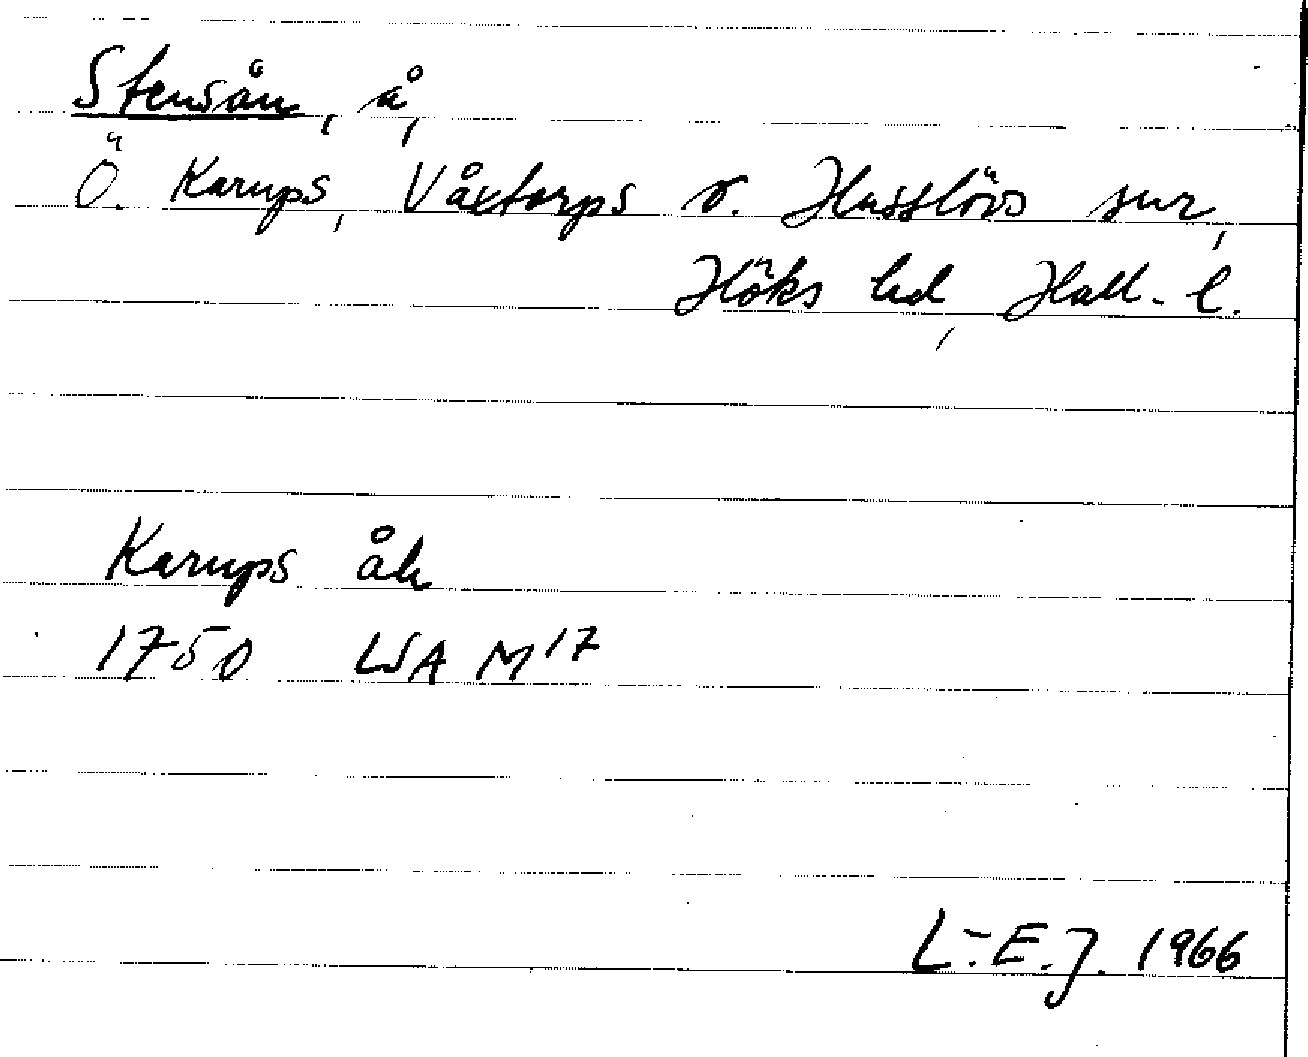 Stensån, å,
Ö. Karups, Våxtorps o. Hasslövs snr,
Höks hd, Hall. l.
Karups åh
1750 LSA M17
L.-E.J. 1966